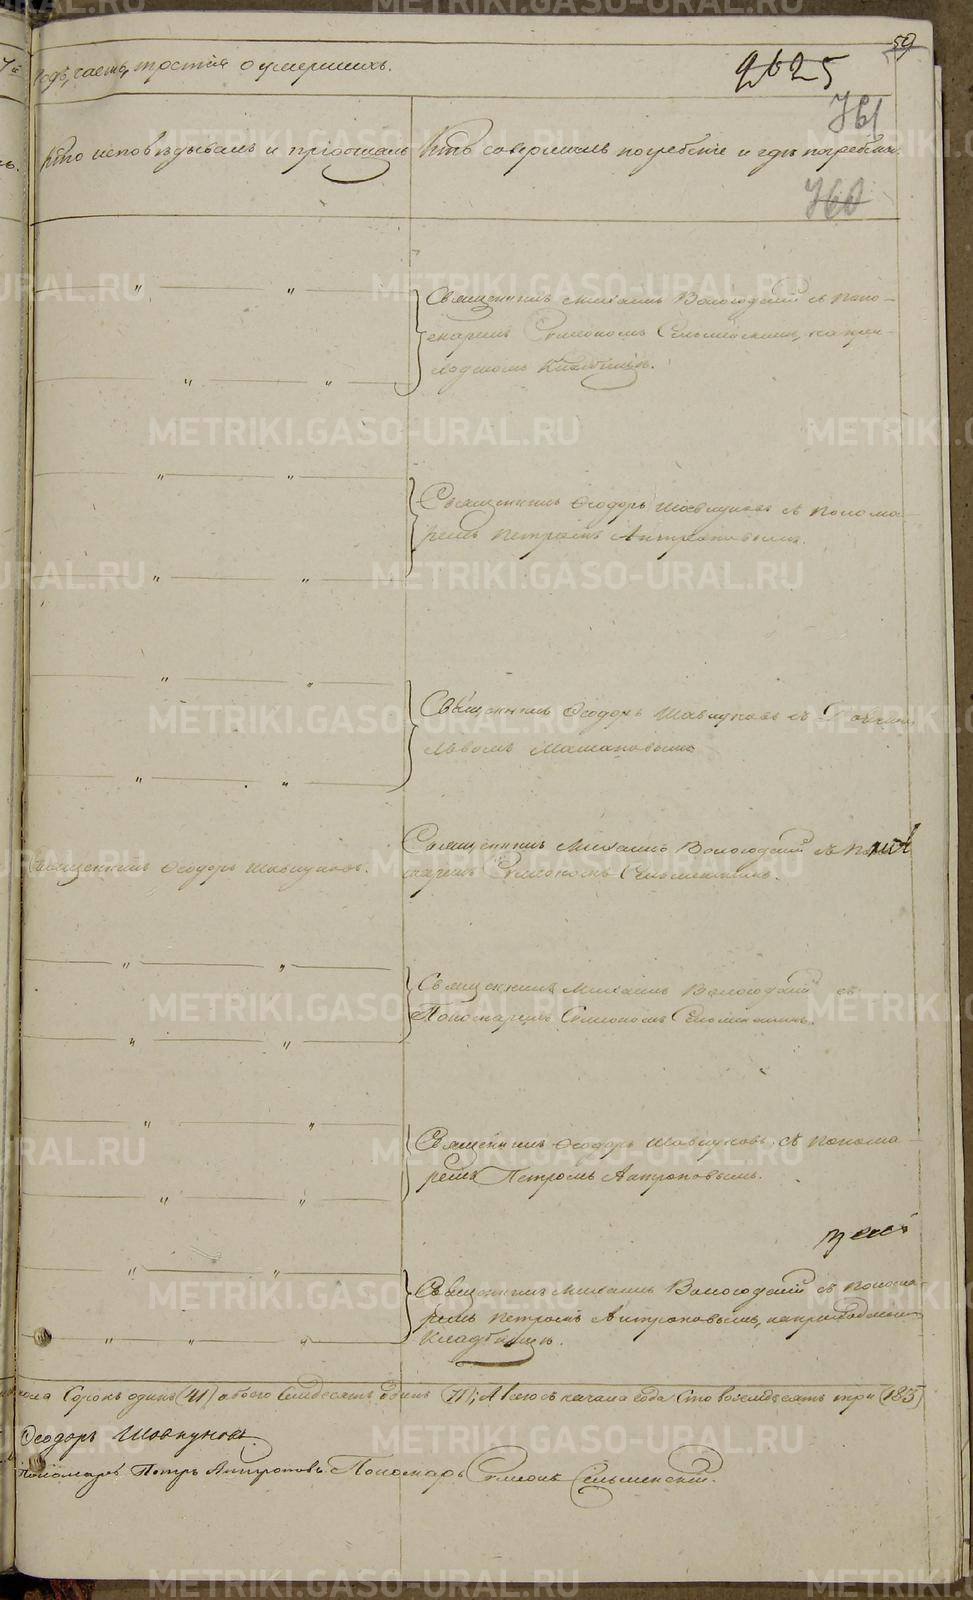 59
годъ, часть, третiя о умершихъ.
2625
761
Кто исповѣдывалъ и прiобщалъ
Кто совершалъ погребенiе и гдѣ погребены.
760
Священникъ Михаилъ Вологодскiй съ Поно-
маремъ Симеономъ Сельменскимъ, на при-
ходскомъ Кладбищѣ.
Священникъ Ѳеодоръ Шавкуновъ съ Понома-
ремъ Петромъ Антроповымъ.
Священникъ Ѳеодоръ Шавкуновъ съ
Львомъ
Священникъ Ѳеодоръ Шавкуновъ.
Священникъ Михаилъ Вологодскiй съ Поно-
маремъ Симеономъ Сельменскимъ.
Священникъ Михаилъ Вологодскiй съ
Пономаремъ Симеономъ Сельменскимъ.
Священникъ Ѳеодоръ Шавкуновъ съ Понома-
ремъ Петромъ Антроповымъ.
Священникъ Михаилъ Вологодскiй съ Понома-
ремъ Петромъ Антроповымъ, на приходскомъ
Кладбищѣ.
пола Сорокъ одинъ (41) обоего Семдесятъ одинъ (71); А всего съ начала года Сто восемдесятъ три (183)
Ѳеодоръ Шавкуновъ
Пономарь Петръ Антроповъ. Пономарь Симеонъ Сельменскiй.
METRIKI.GASO-URAL.RU